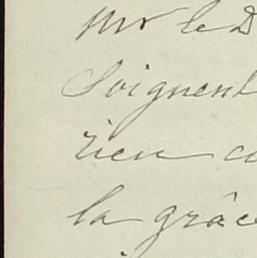 Mr le D
Soignent
rien c
la grâc